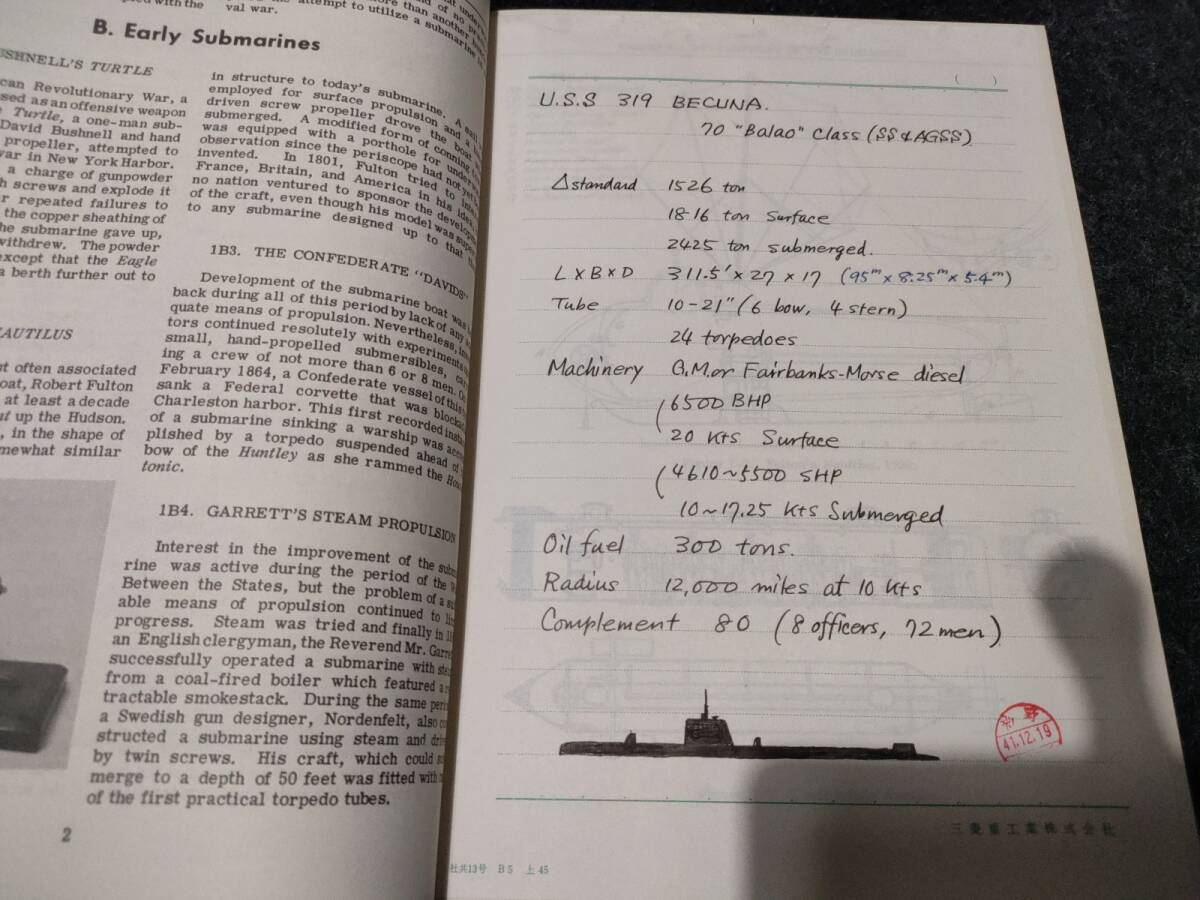 ed with the
val war.
attempt to utilize a submarine in
more than another
B. Early Submarines
SHNELL'S TURTLE
can Revolutionary War, a
sed as an offensive weapon
Turtle, a one-man sub-
David Bushnell and hand
propeller, attempted to
war in New York Harbor.
a charge of gunpowder
h screws and explode it
r repeated failures to
the copper sheathing of
he submarine gave up,
withdrew. The powder
except that the Eagle
a berth further out to
AUTILUS
t often associated
oat, Robert Fulton
at least a decade
ut up the Hudson.
, in the shape of
mewhat similar
in structure to today's submarine. A sail
employed for surface propulsion and a
driven screw propeller drove the boat
submerged. A modified form of conning
was equipped with a porthole for underwater
observation since the periscope had not yet
invented. In 1801, Fulton tried to
France, Britain, and America in his idea,
no nation ventured to sponsor the development
of the craft, even though his model was
to any submarine designed up to that
1B3. THE CONFEDERATE "DAVIDS"
Development of the submarine boat was
back during all of this period by lack of any
quate means of propulsion. Nevertheless,
tors continued resolutely with experiments
small, hand-propelled submersibles,
ing a crew of not more than 6 or 8 men.
February 1864, a Confederate vessel of this
sank a Federal corvette that was
Charleston harbor. This first recorded
of a submarine sinking a warship was
plished by a torpedo suspended ahead of
bow of the Huntley as she rammed the
tonic.
1B4. GARRETT'S STEAM PROPULSION
Interest in the improvement of the
rine was active during the period of the
Between the States, but the problem of a
able means of propulsion continued to
progress. Steam was tried and finally in
an English clergyman, the Reverend Mr.
successfully operated a submarine with
from a coal-fired boiler which featured a
tractable smokestack. During the same
a Swedish gun designer, Nordenfelt, also
structed a submarine using steam and
by twin screws. His craft, which could
merge to a depth of 50 feet was fitted with
of the first practical torpedo tubes.
2
( )
U.S.S 319 BECUNA.
70 "Balao" Class (SS & AGSS)
△standard 1526 ton
1816 ton surface
2425 ton submerged.
L×B×D 311.5'×27×17 (95m×8.25m×5.4m)
Tube 10-21" (6 bow, 4 stern)
24 torpedoes
Machinery G.M.or Fairbanks-Morse diesel
6500 BHP
20 Kts Surface
4610~5500 SHP
10~17.25 Kts Submerged
Oil fuel 300 tons.
Radius 12,000 miles at 10 Kts
Complement 80 (8 officers, 72 men)
41.12.19
三菱重工業株式会社
社共13号 B5 上45